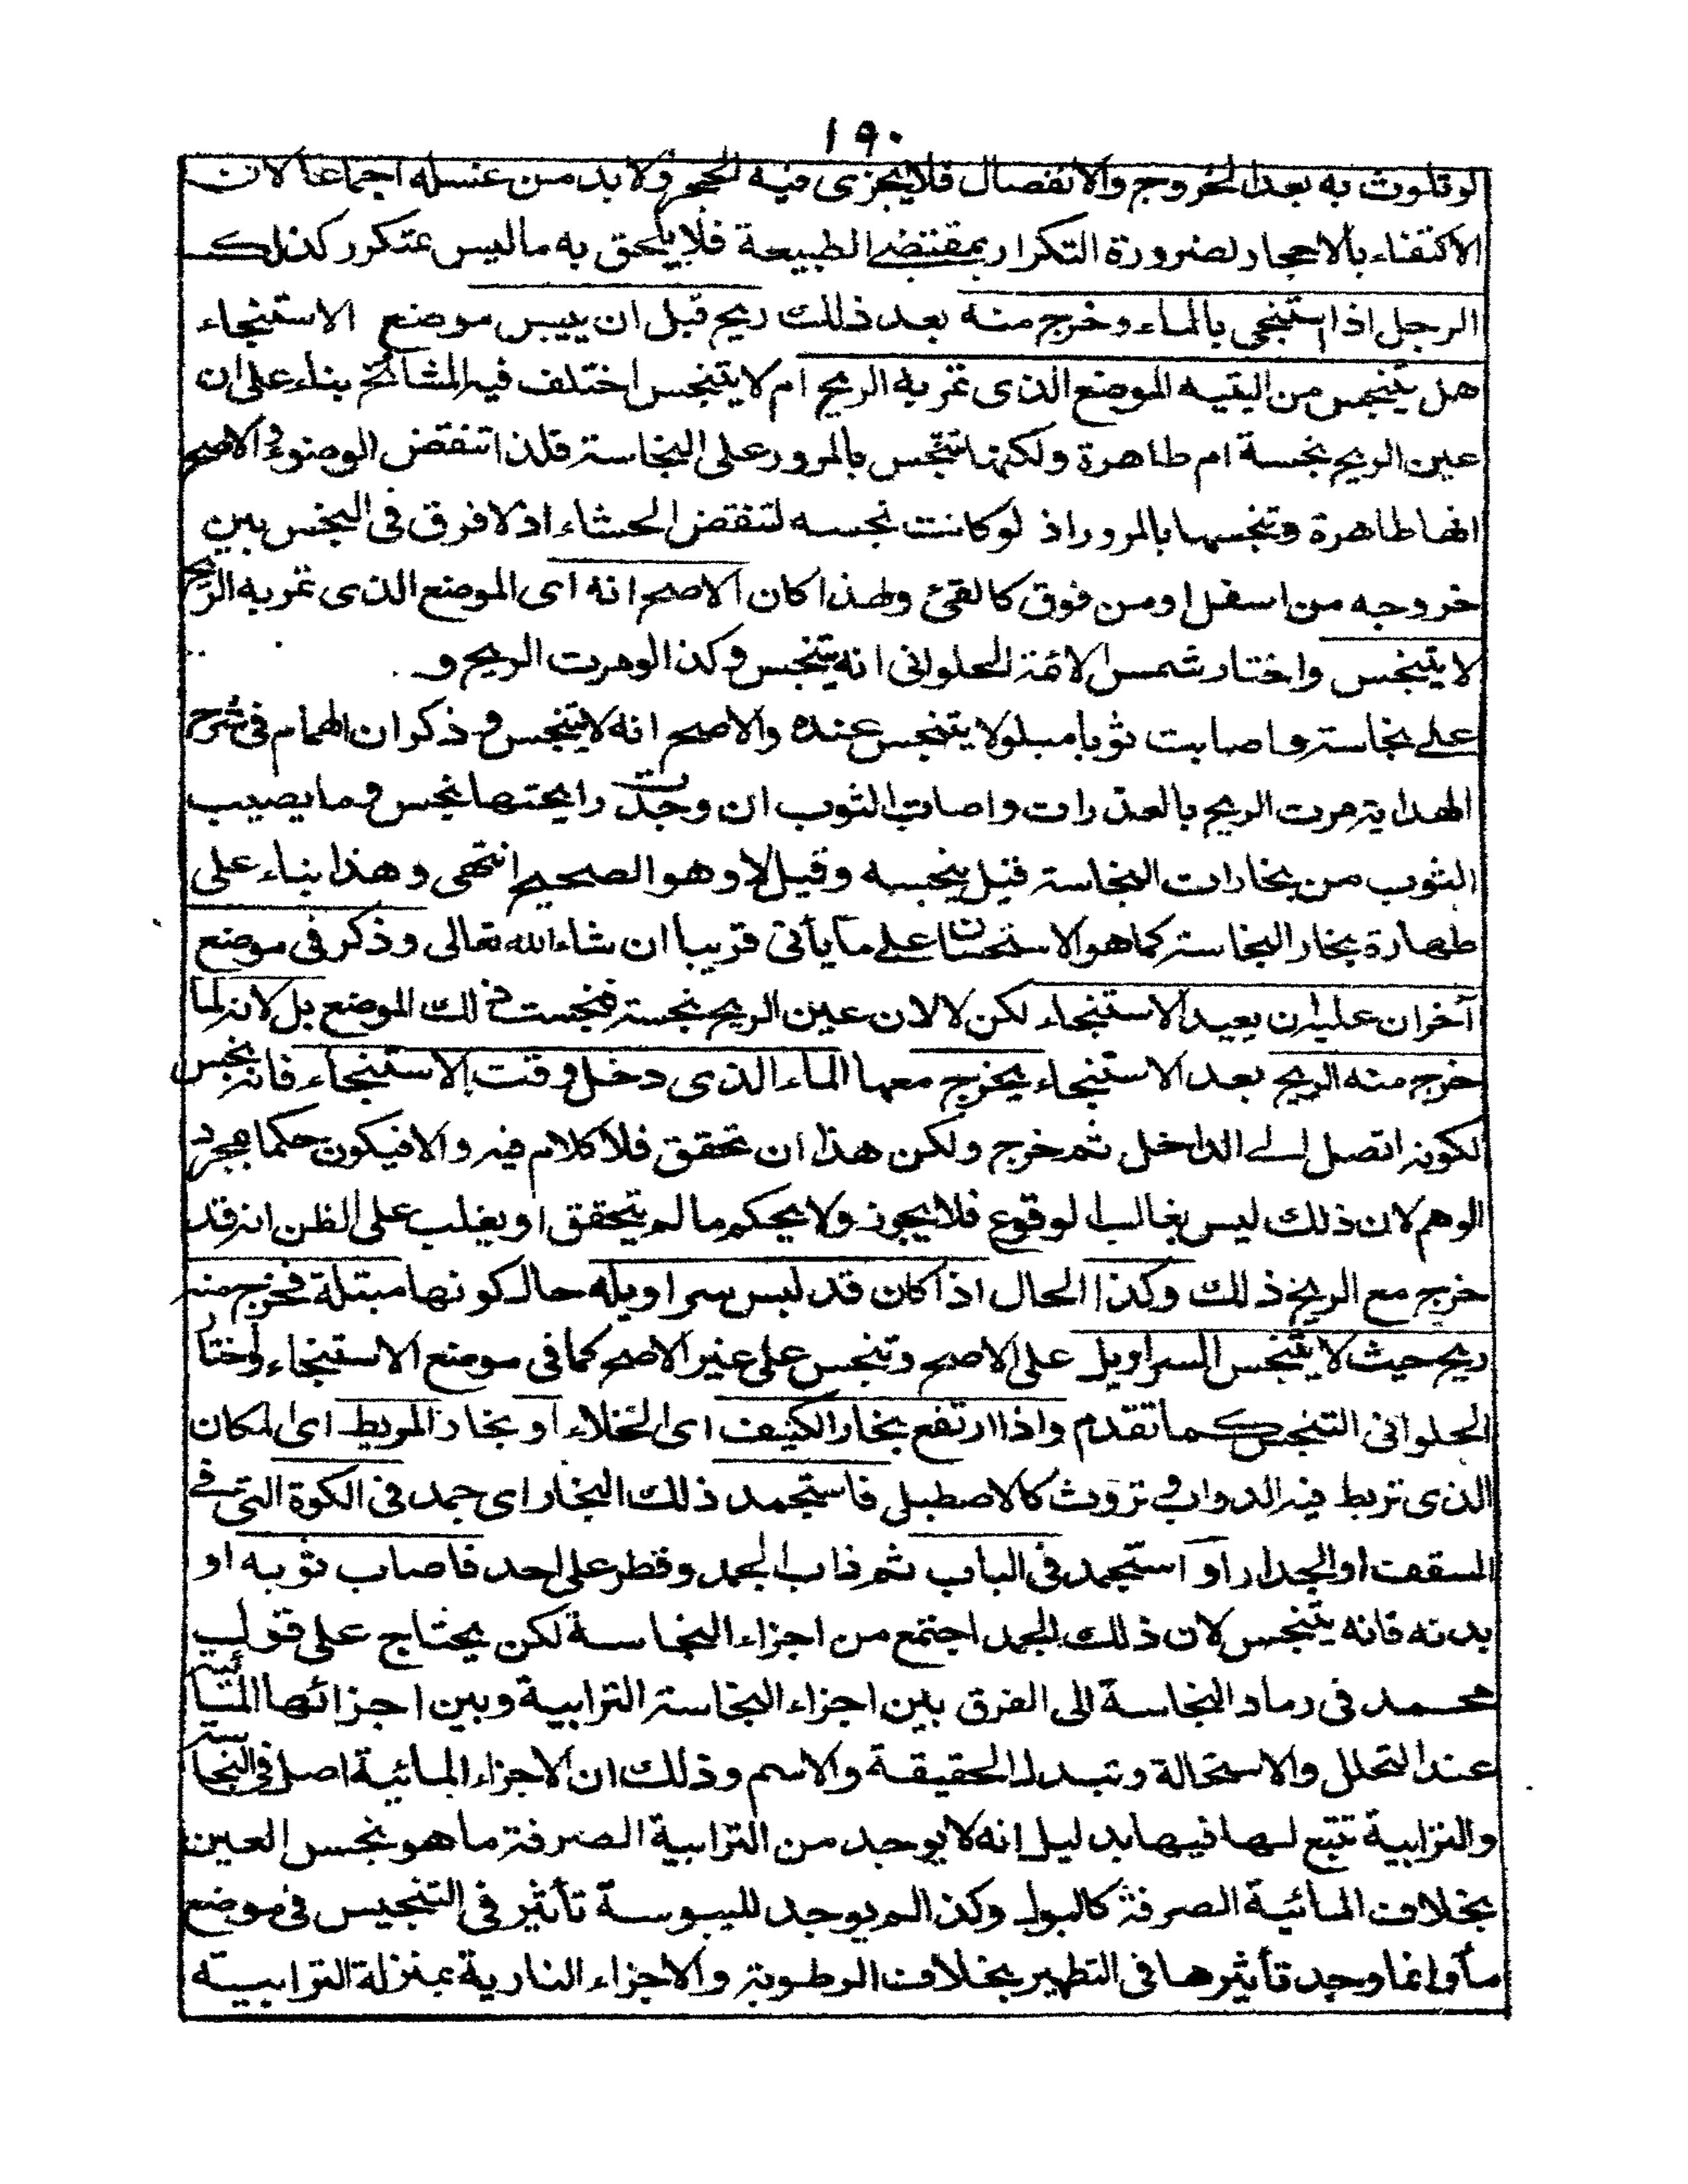 ١٩٠
لو تلوث به بعد الخروج والانفصال فلا يجزى فيه الحجر ولا بد من غسله اجماعا لان
الاكتفاء بالاحجار لضرورة التكرار بمقتضى الطبيعة فلا يلحق به ما ليس بمتكرر كذلك
الرجل اذا استنجى بالماء وخرج منه بعد ذلك ريح قبل ان ييبس موضع الاستنجاء
هل يتنجس من اليتيه الموضع الذى تمر به الريح ام لا يتنجس اختلف فيه المشائخ بناء على ان
عين الريح نجسة ام طاهرة ولكنها تتنجس بالمرور على النجاسة فلذا تنقض الوضوء والاصح
انها طاهرة وتنجسها بالمرور اذ لو كانت نجسه لتنقض الجشاء اذ لا فرق فى النجس بين
خروجه من اسفل او من فوق كالقئ ولهذا كان الاصح انه اى الموضع الذى تمر به الريح
لا يتنجس واختار شمس الائمة الحلوانى انه يتنجس وكذا لو مرت الريح و
على نجاسة واصابت ثوبا مبلولا يتنجس عنده والاصح انه لا يتنجس وذكر ابن الهمام فى شرح
الهداية مرت الريح بالعذرات واصاب الثوب ان وجدت رايحتها نجس وما يصيب
الثوب من بخارات النجاسة قيل ينجسه وقيل لا وهو الصحيح انتهى وهذا بناء على
طهارة بخار النجاسة كما هو الاستحسان على ما يأتى قريبا ان شاء الله تعالى وذكر فى موضع
آخر ان عليه ان يعيد الاستنجاء لكن لا لان عين الريح نجسة فنجست ذلك الموضع بل لانه لما
خرج منه الريح بعد الاستنجاء يخرج معها الماء الذى دخل وقت الاستنجاء فانه نجس
لكونه اتصل الى الداخل ثم خرج ولكن هذا ان تحقق فلا كلام فيه والا فيكون حكما بمجرد
الوهم لان ذلك ليس بغالب الوقوع فلا يجوز ولا يحكم ما لم يتحقق او يغلب على الظن انه قد
خرج مع الريح ذلك وكذا الحال اذا كان قد لبس سراويله حال كونها مبتلة فخرج منه
ريح حيث لا يتنجس السراويل على الاصح وتنجس على غير الاصح كما فى موضع الاستنجاء واختار
الحلوانى التنجس كما تقدم واذا ارتفع بخار الكنيف اى الخلاء او بخار المربط اى المكان
الذى تربط فيه الدواب وتروث كالاصطبل فاستجمد ذلك البخار اى جمد فى الكوة التى فى
السقف او الجدار او استجمد فى الباب ثم ذاب الجمد وقطر على احد فاصاب ثوبه او
بدنه فانه يتنجس لان ذلك الجمد اجتمع من اجزاء النجاسة لكن يحتاج على قول
محمد فى رماد النجاسة الى الفرق بين اجزاء النجاسة الترابية وبين اجزائها المائية
عند التحلل والاستحالة وتبدل الحقيقة والاسم وذلك ان الاجزاء المائية اصل فى النجاسة
والترابية تتبع لها فيها بدليل انه لا يوجد من الترابية الصرفة ما هو نجس العين
بخلاف المائية الصرفة كالبول وكذا لم يوجد لليبوسة تأثير فى التنجيس فى موضع
ما وانما وجد تأثيرها فى التطهير بخلاف الرطوبة والاجزاء النارية بمنزلة الترابية